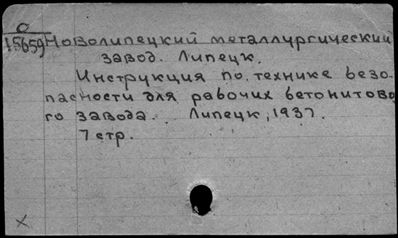 О
15659
Новолипецкий металлургический
завод. Липецк.
Инструкция по технике безо-
пасности для рабочих бетонитово-
го завода. Липецк, 1937.
7 стр.
X